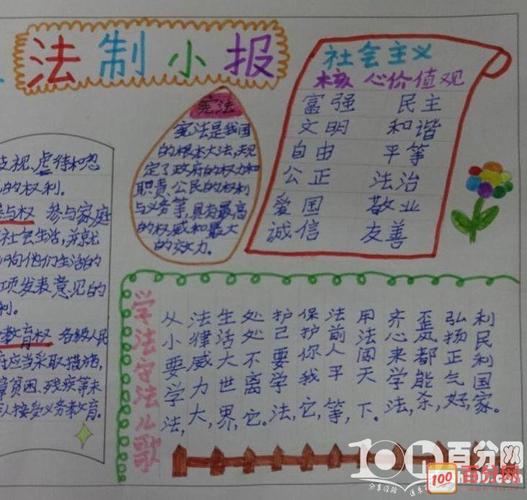 法制小报
视,虐待和忽
的权利。
参与权 参与家庭
社会生活,并就
向他们生活的
项发表意见的
利。
教育权 各级人民
应当采取措施,
贫困、残疾等未
人接受义务教育。
宪法
宪法是我国
的根本大法,规
定了政府的权力和
职责,公民的权利
与义务等,具有最高
的权威和最大
的效力。
社会主义
核心价值观
富强 民主
文明 和谐
自由 平等
公正 法治
爱国 敬业
诚信 友善
学法守法儿歌
从小要学法,
法律威力大,
生活大世界,
处处不离它。
护己要学法,
保护你我它,
法前人平等,
用法闯天下。
齐心来学法,
歪邪都能杀,
弘扬正气好,
利民利国家。
100百分网
100 百分网